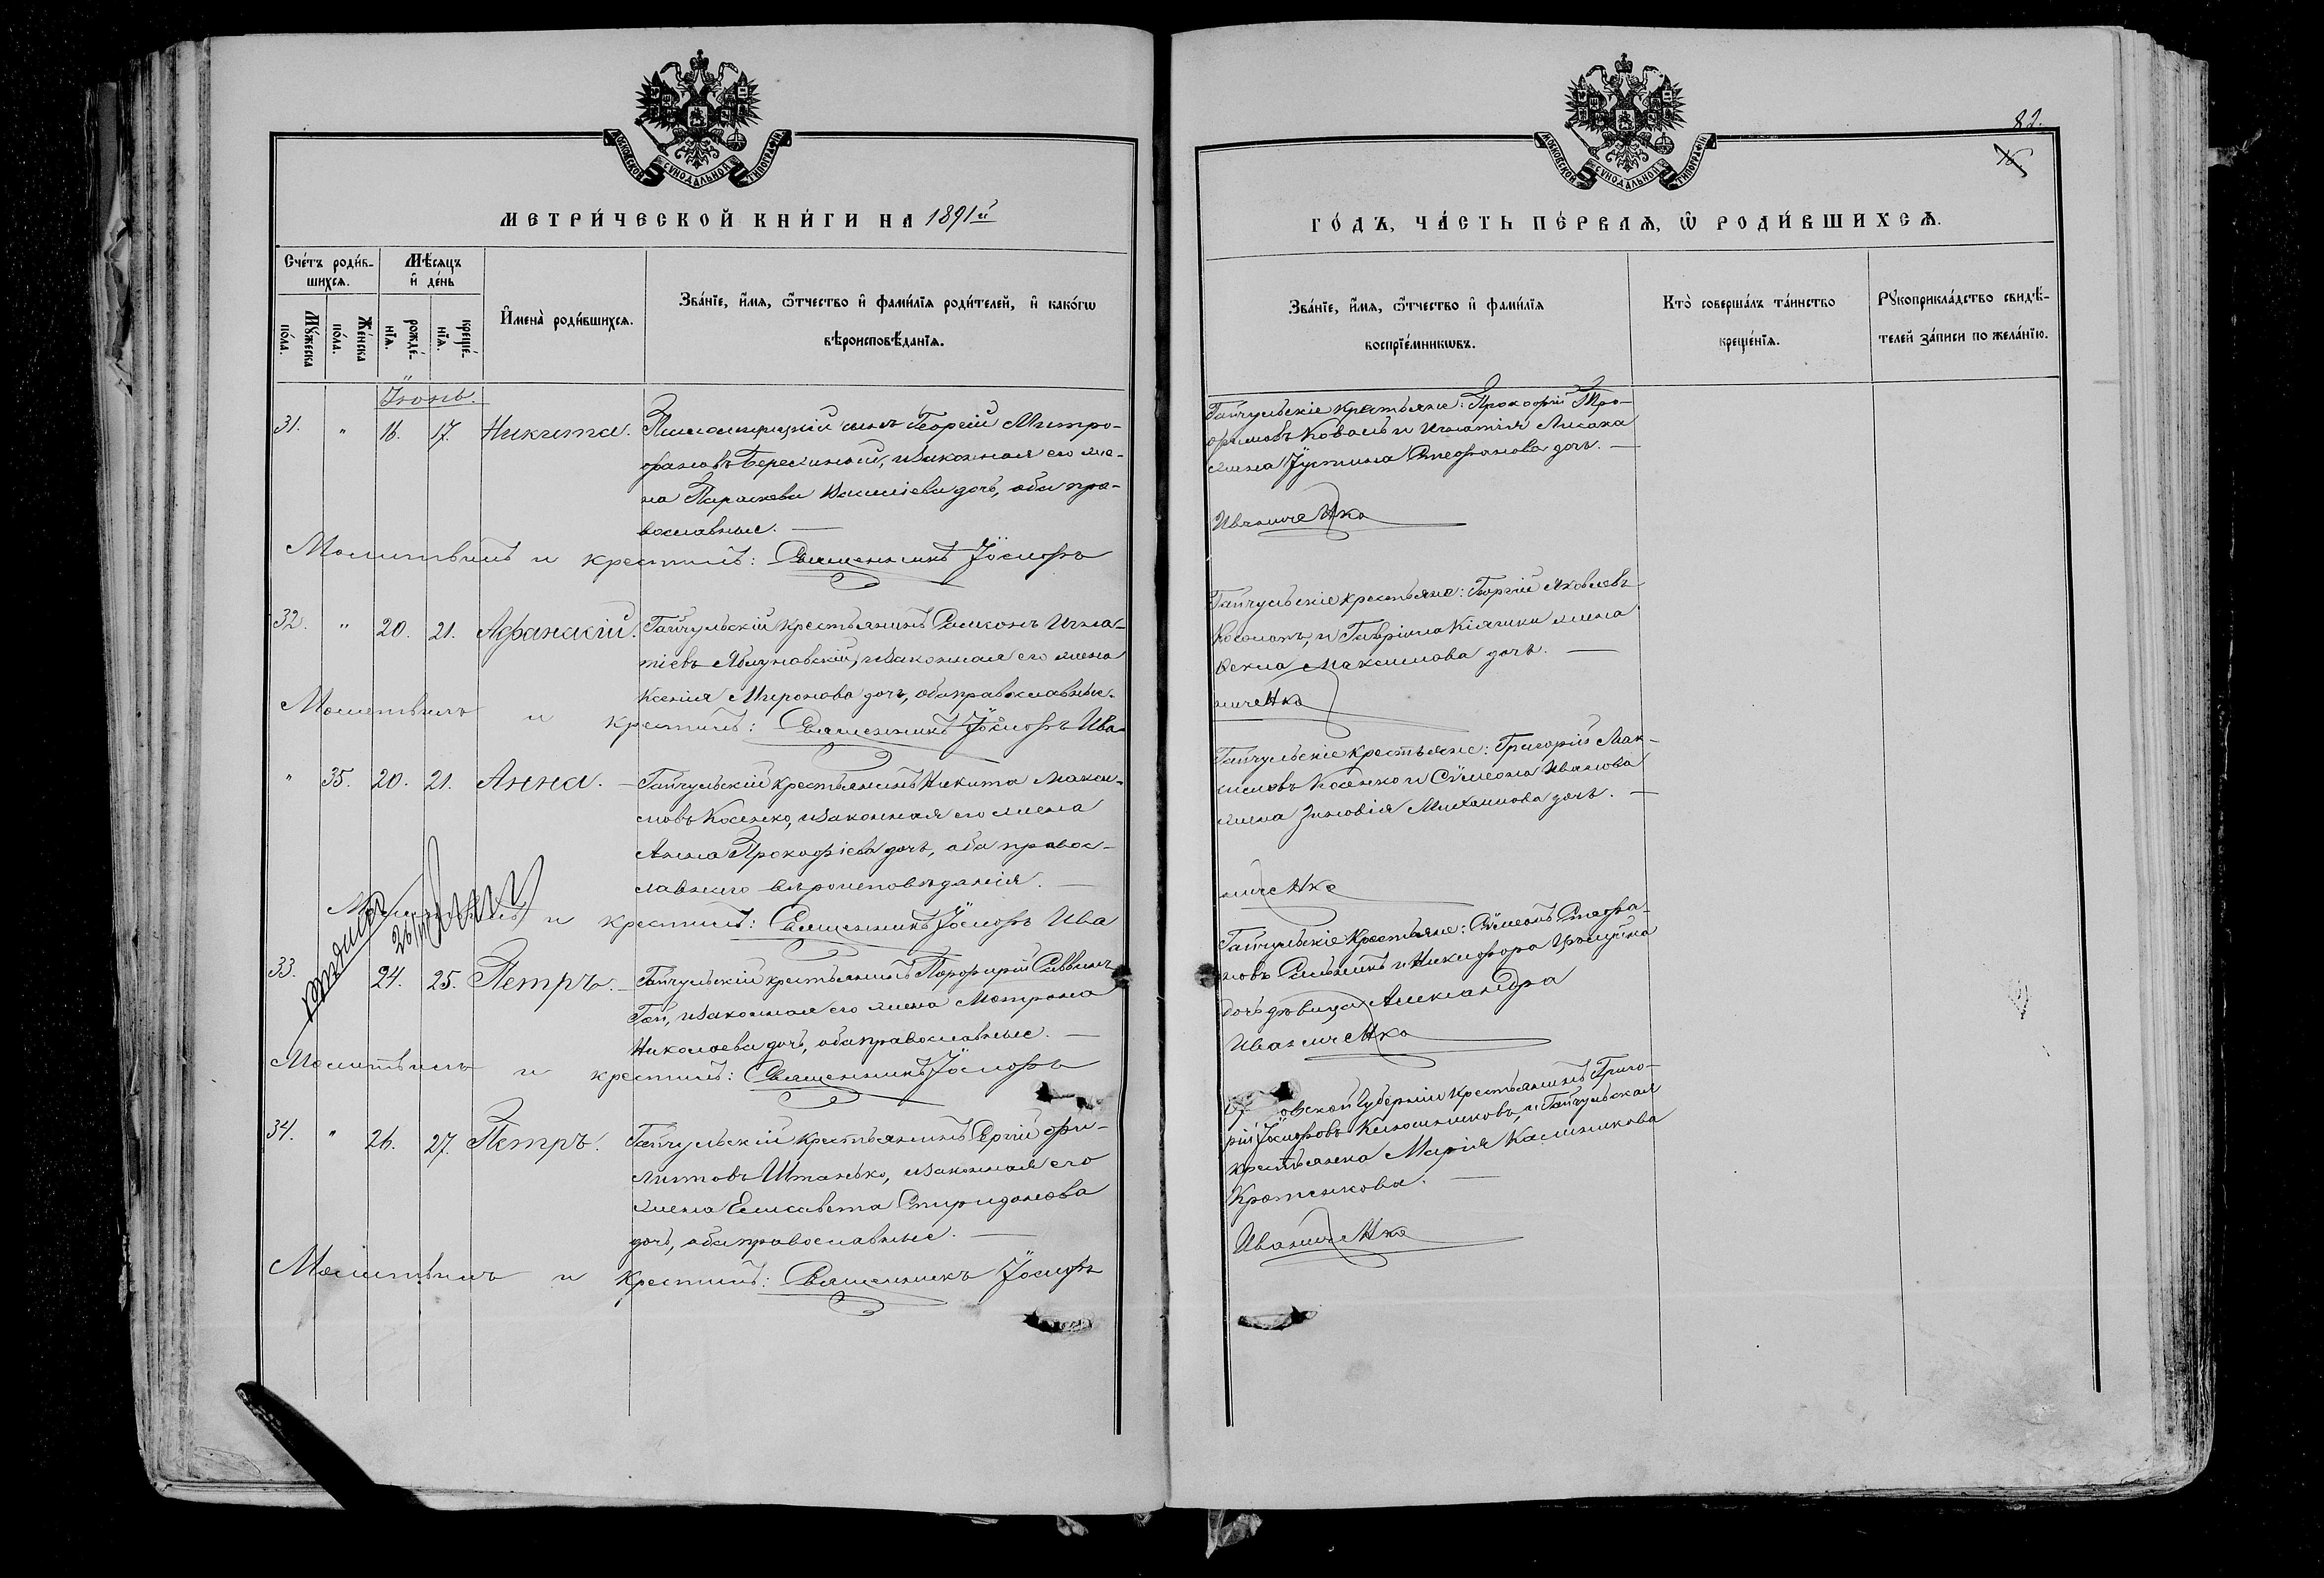 МОСКОВСКОЙ СУНОДАЛЬНОЙ ТИПОГРАФІИ
МЕТРИ́ЧЕСКОЙ КНИ́ГИ НА 1891й
Сче́тъ роди́в-
шихся.
Мѣ́сяцъ
и҆ де́нь
Мꙋ́жеска
по́ла.
Же́нска
по́ла.
рожде́-
нїя.
креще́-
нїя.
И҆мена̀ роди́вшихся.
Зва́нїе, и҆́мя, ѻ҆́тчество и҆ фами́лїя роди́телей, и҆ како́гѡ
вѣроисповѣ́данїя.
Іюнь.
31. " 16. 17. Никита. сынъ Георгій Митро-
фановъ, изаконная его же-
на Параскева дочь, оба пра-
вославные. —
Молитвилъ и крестилъ: Священникъ Іосифъ
32. " 20. 21. Афанасій. Гайчульскій крестьянинъ Игна-
тіевъ Яблуновскій, изаконная его жена
Ксенія Миронова дочь, оба православные.
Молитвилъ и крестилъ: Священникъ Іосифъ Ива
" 35. 20. 21. Анна. — Гайчульскій крестьянинъ Никита Макси-
мовъ Косенко, изаконная его жена
Анна Прокофіева дочь, оба право-
славнаго вѣроисповѣданія. —
Молитвилъ и крестилъ: Священникъ Іосифъ Ива
33. 24. 25. Петръ. — Гайчульскій крестьянинъ Порфирій Саввинъ
Гай, изаконная его жена Матрона
Николаева дочь, оба православные. —
Молитвилъ и крестилъ: Священникъ Іосифъ
34. " 26. 27. Петръ. Гайчульскій крестьянинъ Сергій Фи-
липовъ Штанько, изаконная его
жена Елисавета Спиридонова
дочь, оба православные. —
Молитвилъ и крестилъ: Священникъ Іосифъ
82.
МОСКОВСКОЙ СУНОДАЛЬНОЙ ТИПОГРАФІИ
ГО́ДЪ, ЧА́СТЬ ПЕ́РВАЯ, Ѡ҆ РОДИ́ВШИХСЯ.
Зва́нїе, и҆́мя, ѻ҆́тчество и҆ фами́лїя
воспрїе́мникѡвъ.
Кто̀ соверша́лъ та́инство
креще́нїя.
Рꙋкоприкла́дство свидѣ́-
телей за́писи по жела́нїю.
Гайчульскіе крестьяне: Прокофій Тро-
фимовъ Коваль и Игнатія Лисака
жена Іустина Стефанова дочь. —
Иваниченко
Гайчульскіе крестьяне: Георгій Яковлевъ
и Гавріила
жена
Ѳекла Максимова дочь. —
ниченко
Гайчульскіе крестьяне: Григорій Мак-
симовъ Косенко и Сѵмеона Иванова
жена Зиновія Михаилова дочь. —
ниченко
Гайчульскіе крестьяне: Сѵмеонъ Стефа-
новъ и Никифора
дочь дѣвица Александра
Иваниченко
овской губерніи крестьянинъ Григо-
рій Іосифовъ и Гайчульская
крестьянка Марія Калиникова
Кротенкова. —
Иваниченко